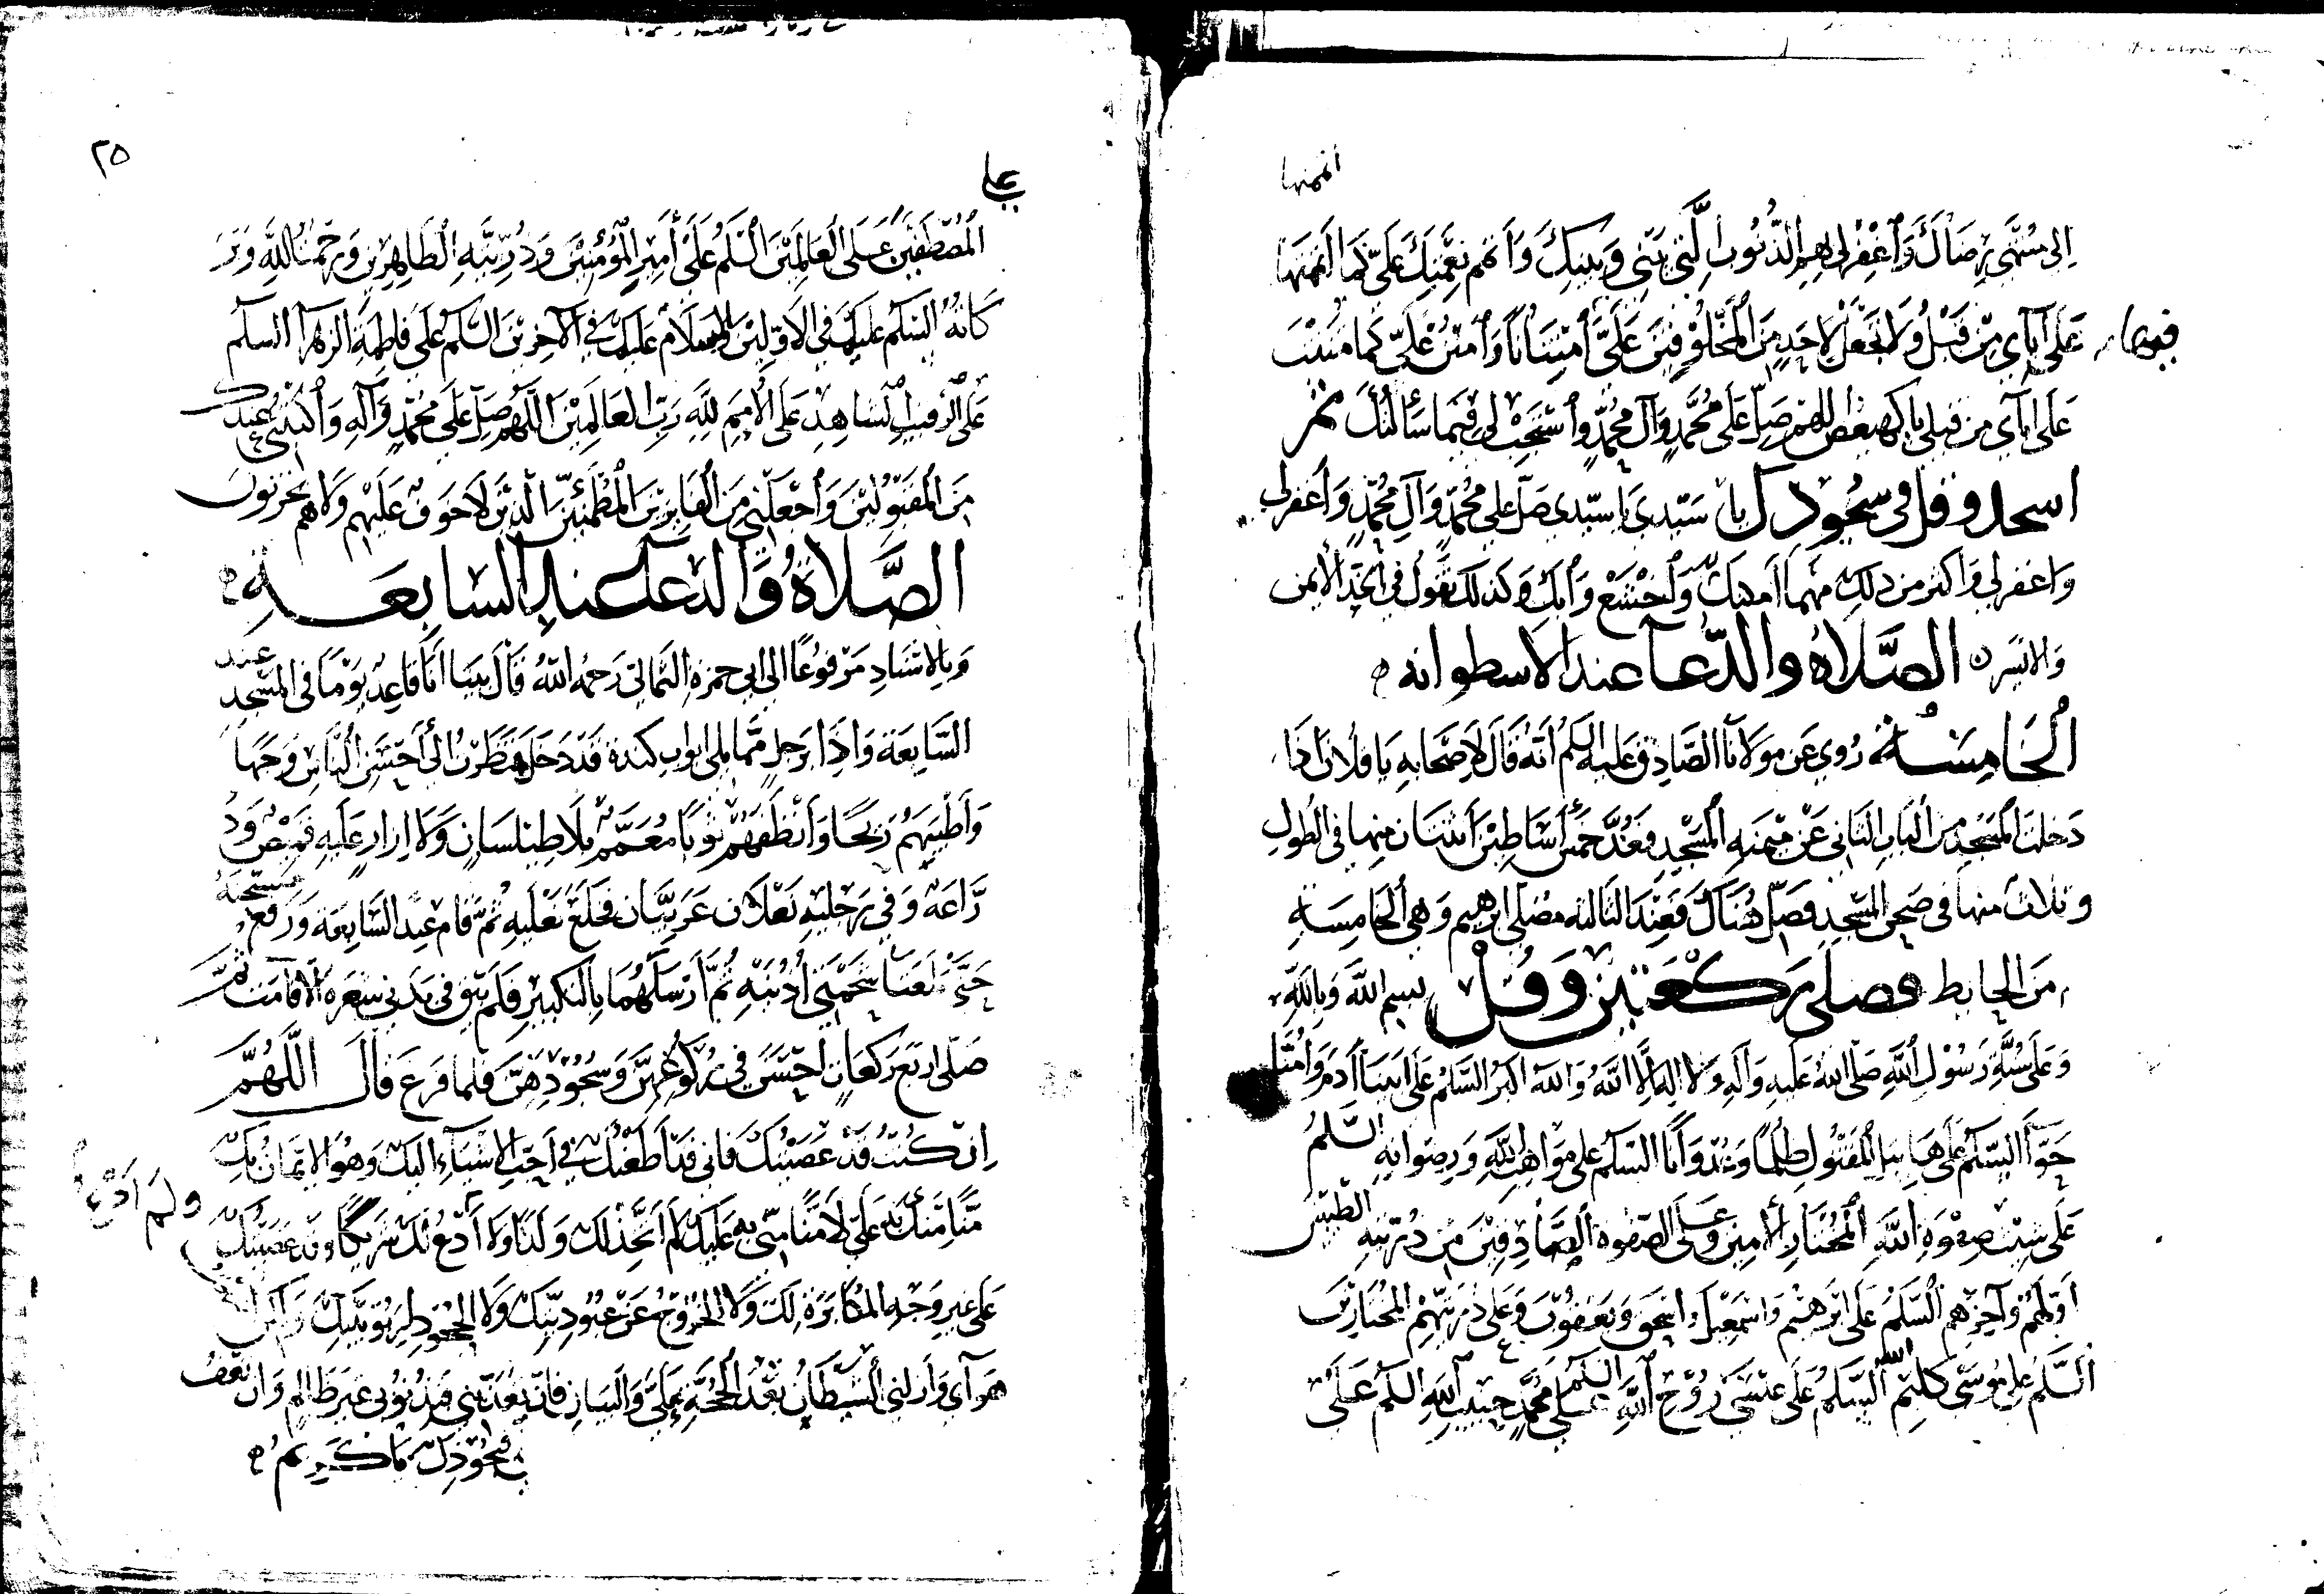 اتممتها
إلى منتهى رضاك وأغفر لي بهم الذنوب التي بيني وبينك وأتمم نعمتك علي كما أتممتها
على آبائي من قبل ولا تجعل لأحد من المخلوقين علي أمتنانا وأمنن علي كما مننت
على آبائي من قبلي يا كهيعص اللهم صل على محمد وآل محمد وأستجب لي فيما سألتك ثم
اسجد وقل في سجودك يا سيدي يا سيدي صل على محمد وآل محمد وأغفر لي
واغفر لي واكثر من ذلك مهما أمكنك وأخشع وأبك وكذلك تقول في الخد الأيمن
والايسر الصلاة والدعا عند الاسطوانه
الخامسة روي عن مولانا الصادق عليه السلم أنه قال لأصحابه يا فلان إذا
دخلت المسجد من الباب الثاني عن ميمنه المسجد فعد خمس أساطين أثنتان منها في الطول
وثلاث منها في صحن المسجد فصل هناك فعند الثالثه مصلى ابرهيم وهي الخامسة
من الحايط فصلي ركعتين وقل بسم الله وبالله
وعلى سنة رسول الله صلى الله عليه وآله ولا إله إلا الله والله اكبر السلم على أبينا آدم وأمنا
حوآ السلم على هابيل المقتول ظلما وعدوانا السلم على مواهب الله ورضوانه السلم
على شيث صفوة الله المختار الأمين وعلى الصفوة الصادقين من ذريته الطيبين
أولهم وآخرهم السلم على ابرهيم واسمعيل واسحق ويعقوب وعلى ذريتهم المختارين
السلم على موسى كليم الله السلم على عيسى روح الله السلم على محمد حبيب الله السلم على
٢٥
على
المصطفين على العالمين السلم على أمير المؤمنين وذريته الطاهرين ورحمة الله وبر
كاته السلم عليك في الاولين والسلام عليك في الآخرين السلم على فاطمة الزهرآ السلم
على الرقيب الشاهد على الأمم لله رب العالمين اللهم صل على محمد وآله وأكتبني عندك
من المقبولين وأجعلني من الفايزين المطمئنين الذين لا خوف عليهم ولا هم يحزنون
الصلاة والدعا عند السابعة
وبالاسناد مرفوعا الى ابي حمزه الثمالي رحمه الله قال بينا أنا قاعد يوما في المسجد عند
السابعة واذا برجل مما يلي ابواب كندة قد دخل فنظرت الى أحسن الناس وجها
وأطيبهم ريحا وأنظفهم ثوبا معمم بلا طيلسان ولا ازار عليه قميص ود
راعة وفي رجليه نعلان عربيان فخلع نعليه ثم قام عند السابعة ورفع مسبحته
حتى بلغتا شحمتي أذنيه ثم أرسلهما بالتكبير فلم يبق في بدني شعرة الا قامت ثم
صلى اربع ركعات أحسن في ركوعهن وسجودهن فلما فرغ قال اللهم
إن كنت قد عصيتك فاني قد أطعتك في أحب الاشياء اليك وهو الايمان بك
منا منك به علي لا منا مني به عليك لم أتخذ لك ولدا ولا أدع لك شريكا وقد عصيتك
ولم ادع
على غير وجه المكابرة لك ولا الخروج عن عبوديتك ولا الجحود لربوبيتك
هوآي وأزلني الشيطان بعد الحجة علي والبيان فان تعذبني فبذنوبي غير ظالم وان تعف
فبجودك يا كريم